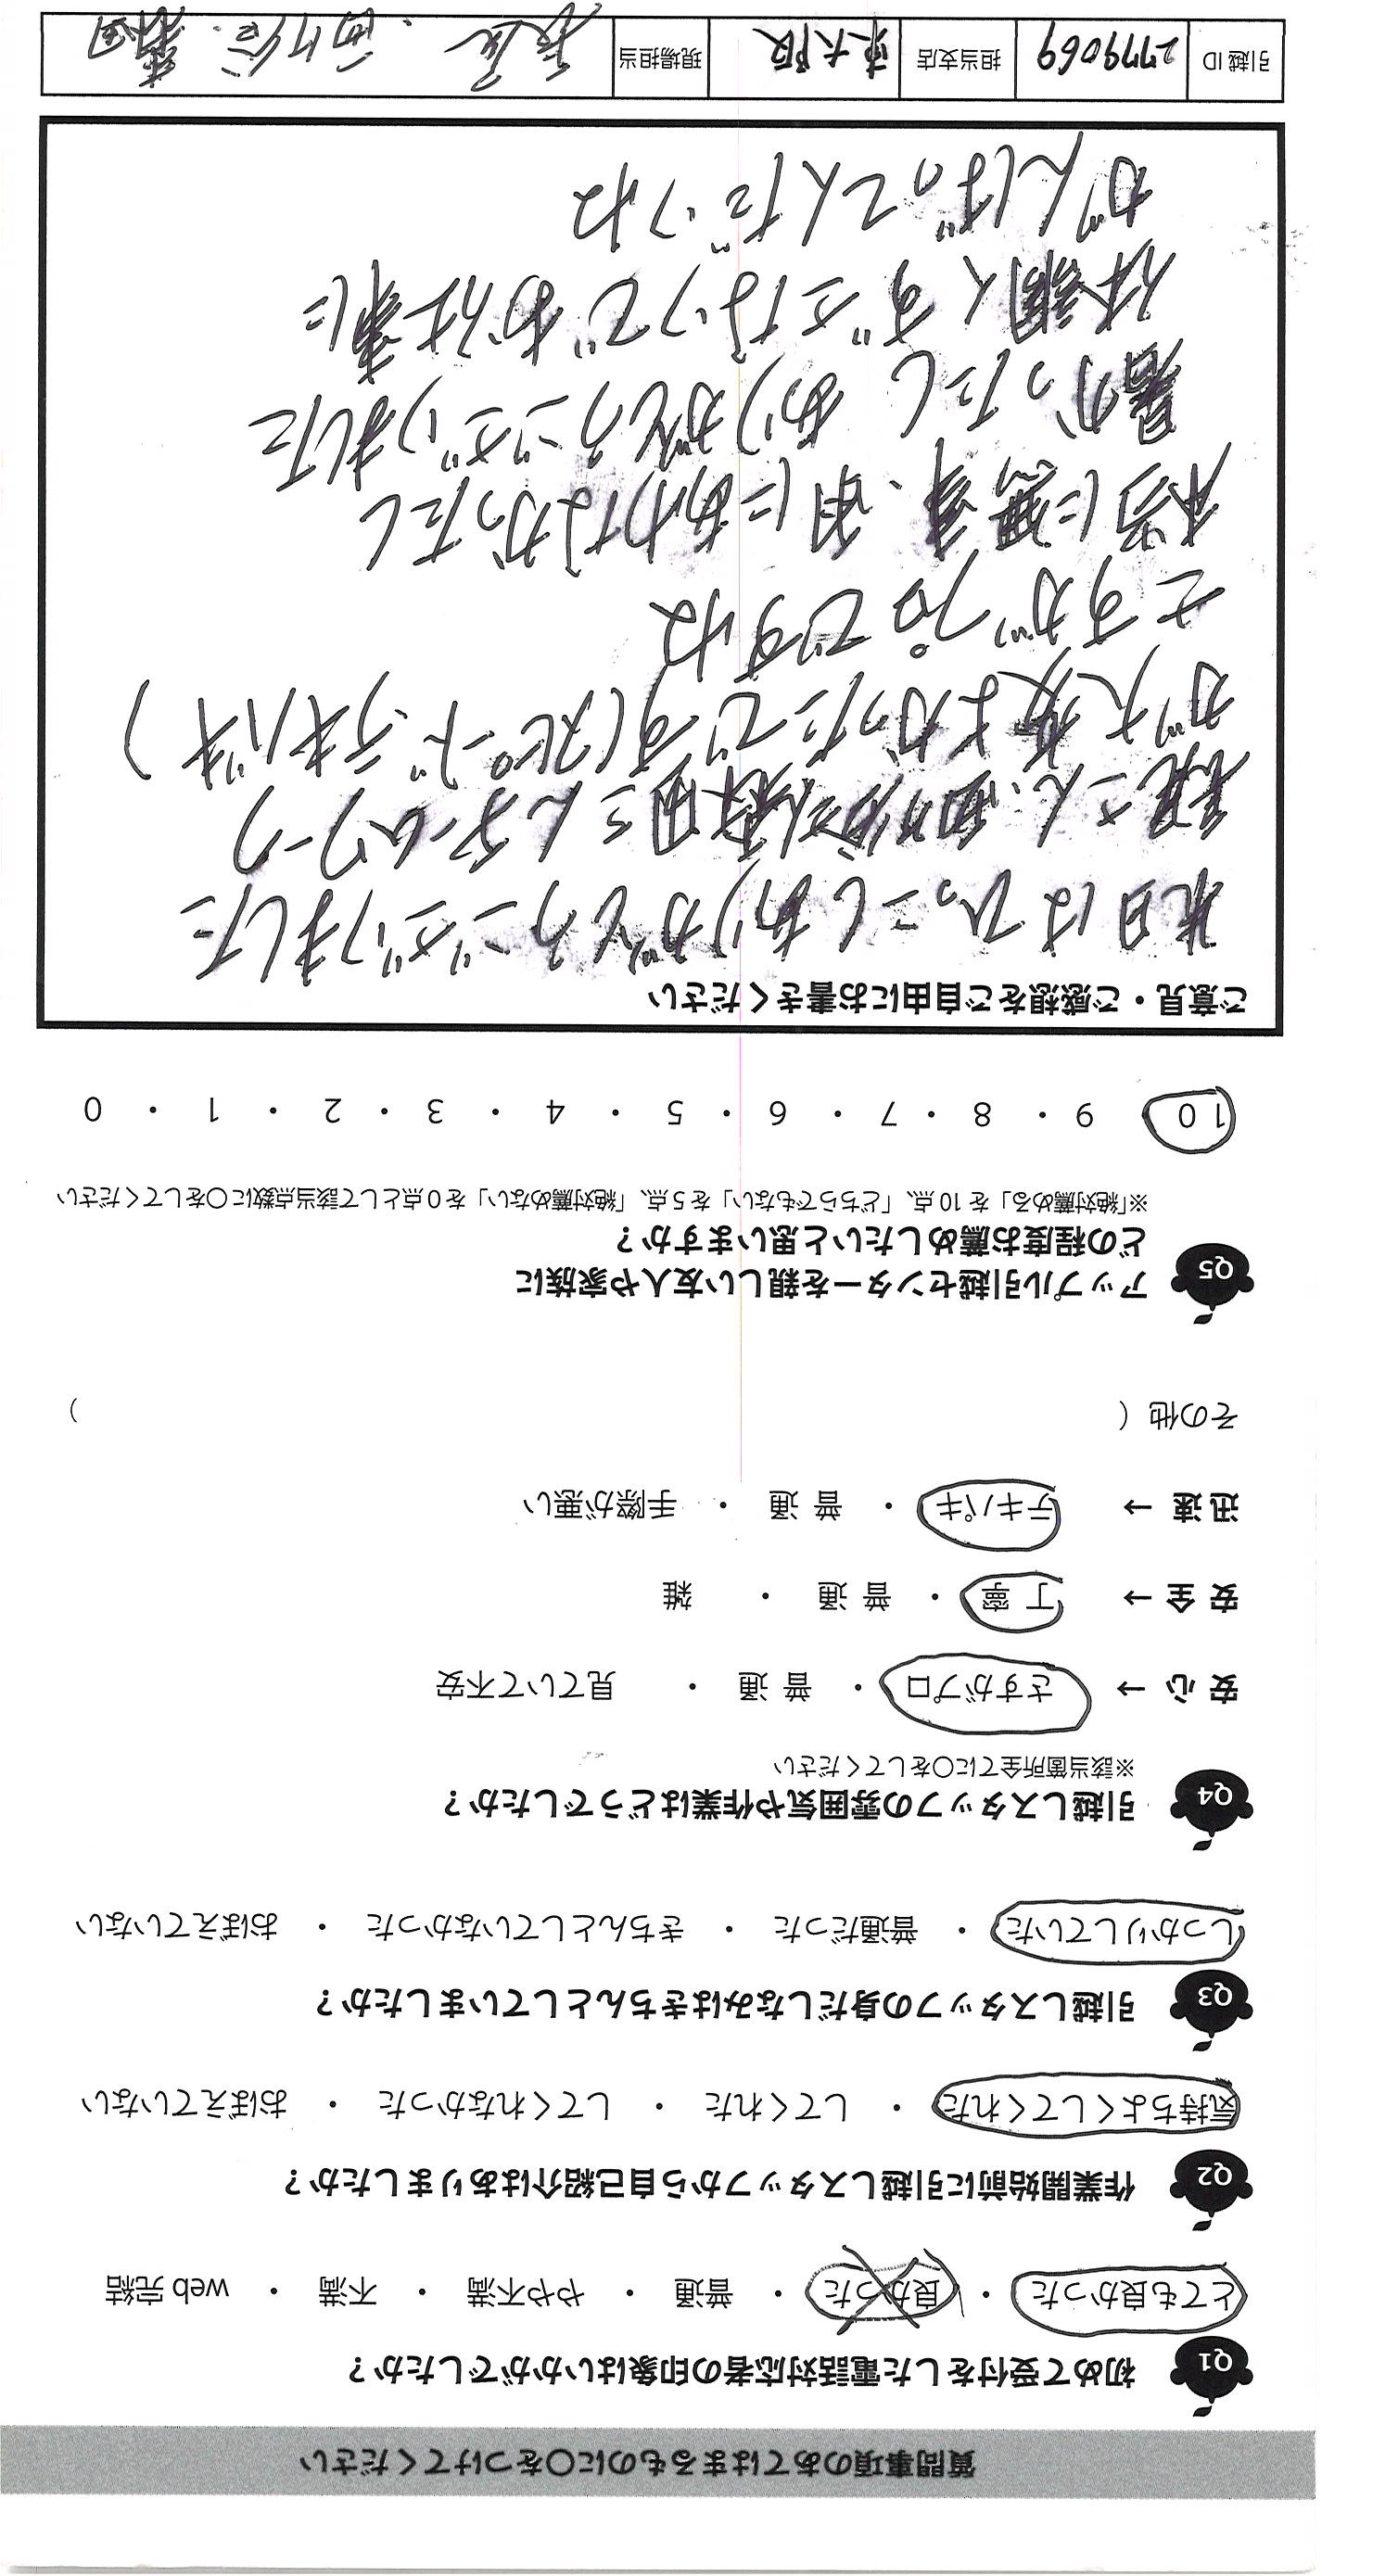 質問事項のあてはまるものに○をつけてください
Q1 初めて受付をした電話対応者の印象はいかがでしたか？
とても良かった ・ 良かった ・ 普通 ・ やや不満 ・ 不満 ・ web 完結
Q2 作業開始前に引越しスタッフから自己紹介はありましたか？
気持ちよくしてくれた ・ してくれた ・ してくれなかった ・ おぼえていない
Q3 引越しスタッフの身だしなみはきちんとしていましたか？
しっかりしていた ・ 普通だった ・ きちんとしていなかった ・ おぼえていない
Q4 引越しスタッフの雰囲気や作業はどうでしたか？
※該当箇所全てに○をしてください
安心 → さすがプロ ・ 普通 ・ 見ていて不安
安全 → 丁寧 ・ 普通 ・ 雑
迅速 → テキパキ ・ 普通 ・ 手際が悪い
その他（ ）
Q5 アップル引越センターを親しい友人や家族に
どの程度お薦めしたいと思いますか？
※「絶対薦める」を 10 点、「どちらでもない」を 5 点、「絶対薦めない」を 0 点として該当点数に○をしてください
10 ・ 9 ・ 8 ・ 7 ・ 6 ・ 5 ・ 4 ・ 3 ・ 2 ・ 1 ・ 0
ご意見・ご感想をご自由にお書きください
本日はひっこしありがとうございました
さん、さん さんチームワーク
が大変よかったです(スピード、テキパキ)
さすがプロですね
本当に無事、雨にあわなかったし
暑かったし ありがとうございました
体調くずさないで お仕事に
がんばってくんだいね
引越 ID 2779069 担当支店 東大阪 現場担当